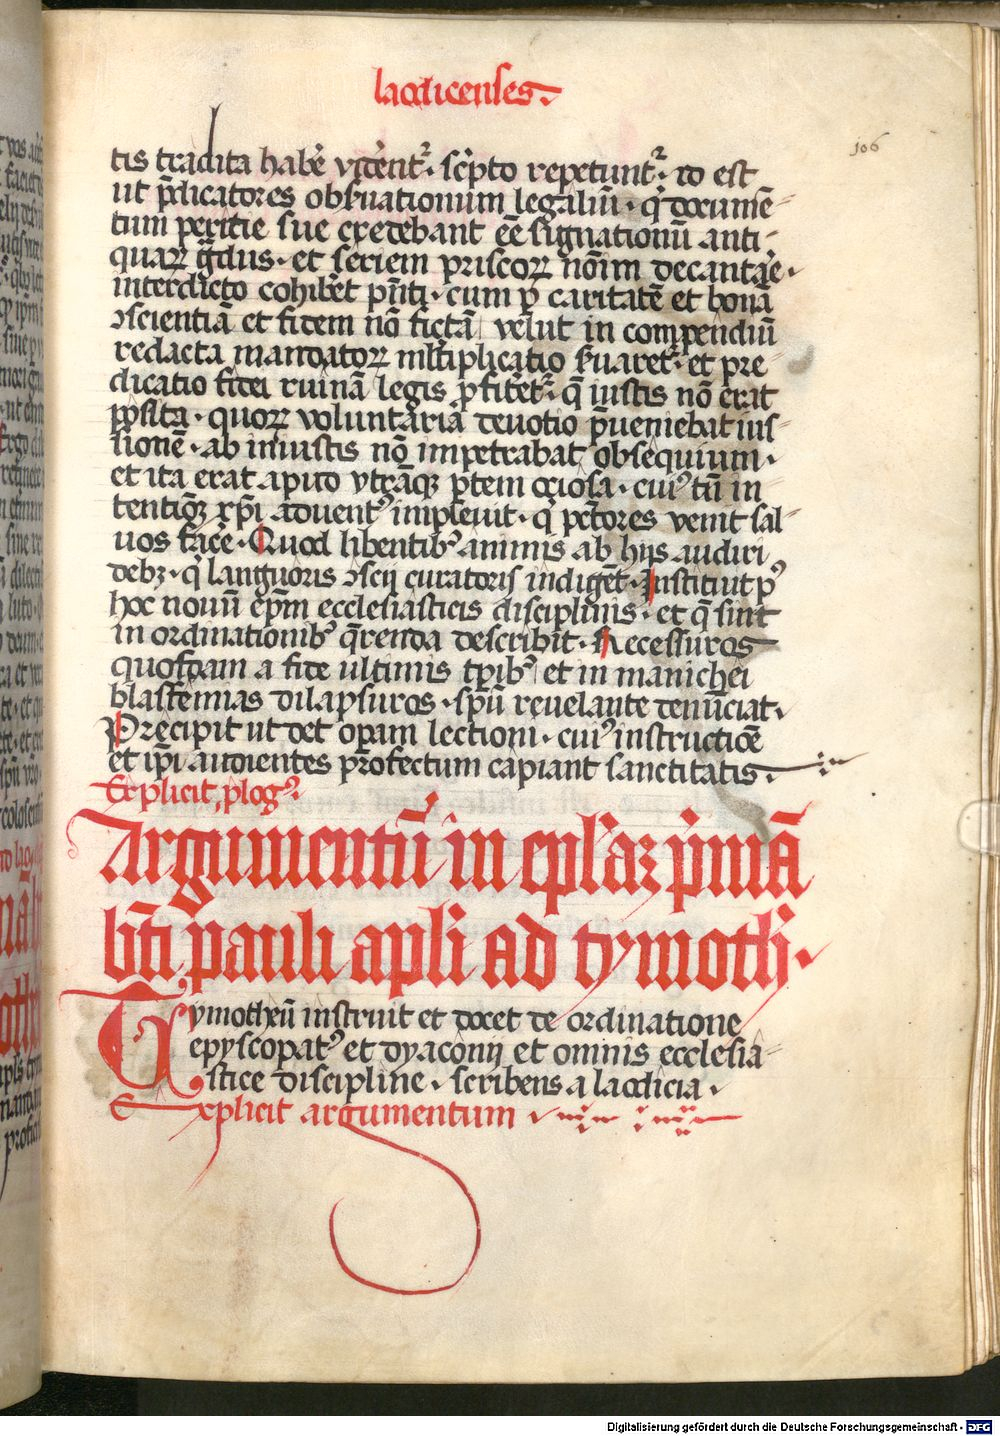 laodicenses.
106
tis tradita habe᷑ vide᷑nt᷑. sc͛pto repetunt᷑. id est
ut p̄dicatores obẜuationum legaliū. qͥ docume᷑-
tum peritie sue credebant ee᷑ signationū anti-
quaꝝ gͣdus. et seriem priscoꝝ noīm decanta᷑e.
interdicto cohibe᷑t pn̄ti. cum ꝑ caritatē et bonā
ↄscientiā et fidem nō fictā velut in compendiū
redacta mandatoꝝ ml̄tiplicatio ẜuaret᷑. et pre
dicatio fidei ruinā legis ꝓfitet᷑. q̄ iustis nō erat
ꝓposita. quoꝝ voluntaria deuotio p̄ueniebat ius-
sionē. ab iniustis nō impetrabat obsequium.
et ita erat apud vtrāqꝫ ꝑtem ociosa. cuiꝰ tn̄ in
tentioneꝫ xp̄i aduentꝰ impleuit. qͥ pctores venit sal-
uos face᷑. Quod libentibꝰ animis ab hijs audiri
debꝫ. qͥ languoris ↄscij curatoris indigēt. Instituit pꝰ
hoc nouū ep̄m ecclesiasticis disciplinis. et q̄ sint
in ordinationibꝰ q̄renda describit. Recessuros
quosdam a fide ultimis tp̄ibꝰ et in manichei
blasfemias dilapsuros. spū reuelante denūciat.
Precipit ut det opam lectioni. cuiꝰ instructiōe
et ip̄i audientes profectum capiant sanctitatis.
Explicit plogꝰ.
Argumentū in epl'aꝫ pͥmā
bt̄i pauli apl'i ad tymoth'.
Tymotheū instruit et docet de ordinatione
epyscopatꝰ et dyaconij et omnis ecclesia-
stice discipline. scribens a laodicia.
Explicit argumentum
Digitalisierung gefördert durch die Deutsche Forschungsgemeinschaft - DFG